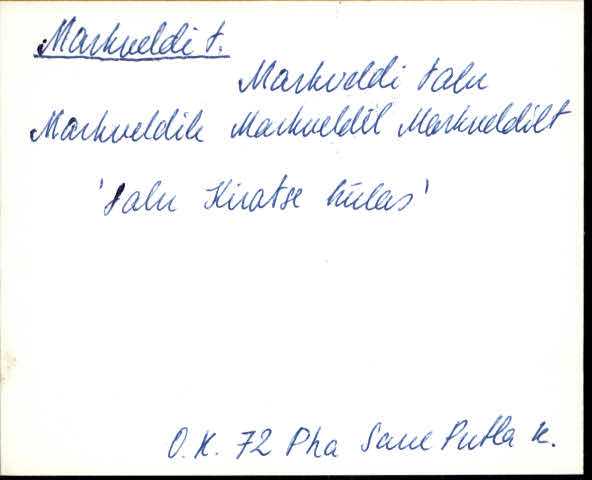 Markveldi t.
Markveldi talu
Markveldile Markveldil Markveldilt
'talu Kiratse külas'
O. K. 72 Pha Saue Putla k.